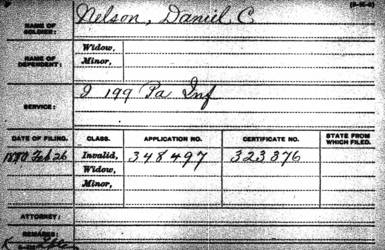 (3-10-2)
NAME OF SOLDIER: Nelson, Daniel C
NAME OF DEPENDENT: Widow,
Minor,
SERVICE: I 199 Pa Inf
DATE OF FILING. CLASS. APPLICATION NO. CERTIFICATE NO. STATE FROM WHICH FILED.
1880 Feb 26 Invalid, 348497 323876
Widow,
Minor,
ATTORNEY:
REMARKS: